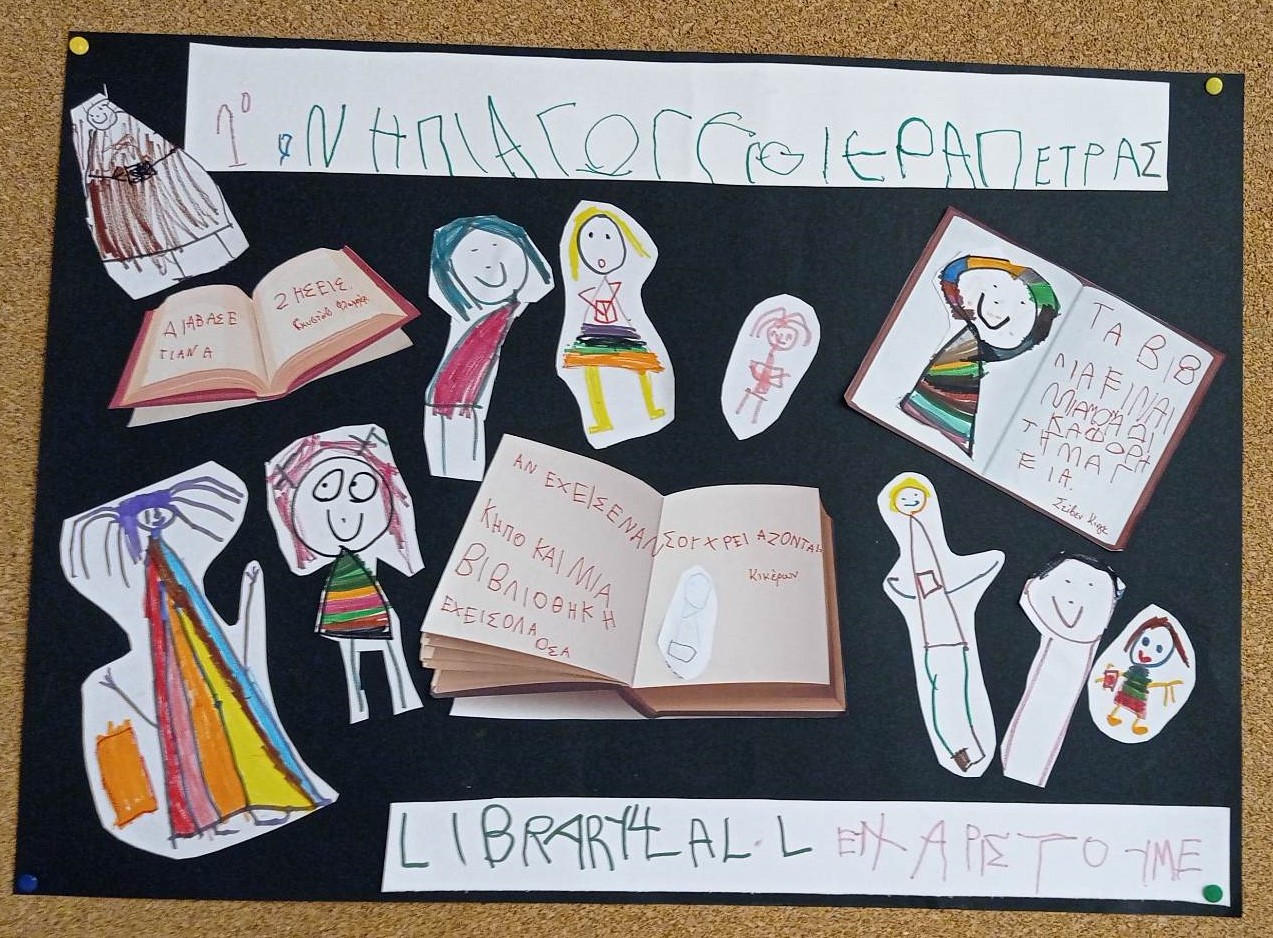 1ο ΝΗΠΙΑΓΩΓΕΙΟ ΙΕΡΑΠΕΤΡΑΣ
ΔΙΑΒΑΣΕ
ΓΙΑ ΝΑ
ΖΗΣΕΙΣ.
Γκυστάβ Φλωμπέρ
ΤΑ ΒΙΒ
ΛΙΑ ΕΙΝΑΙ
ΜΟΝΑΔΙ
ΚΑ ΦΟΡΗ
ΤΗ ΜΑΓ
ΕΙΑ
Στίβεν Κινγκ
ΑΝ ΕΧΕΙΣ ΕΝΑΝ
ΚΗΠΟ ΚΑΙ ΜΙΑ
ΒΙΒΛΙΟΘΗΚΗ
ΕΧΕΙΣ ΟΛΑ
ΟΣΑ
ΣΟΥ ΧΡΕΙΑΖΟΝΤΑΙ
Κικέρων
LIBRARY4ALL ΕΥΧΑΡΙΣΤΟΥΜΕ